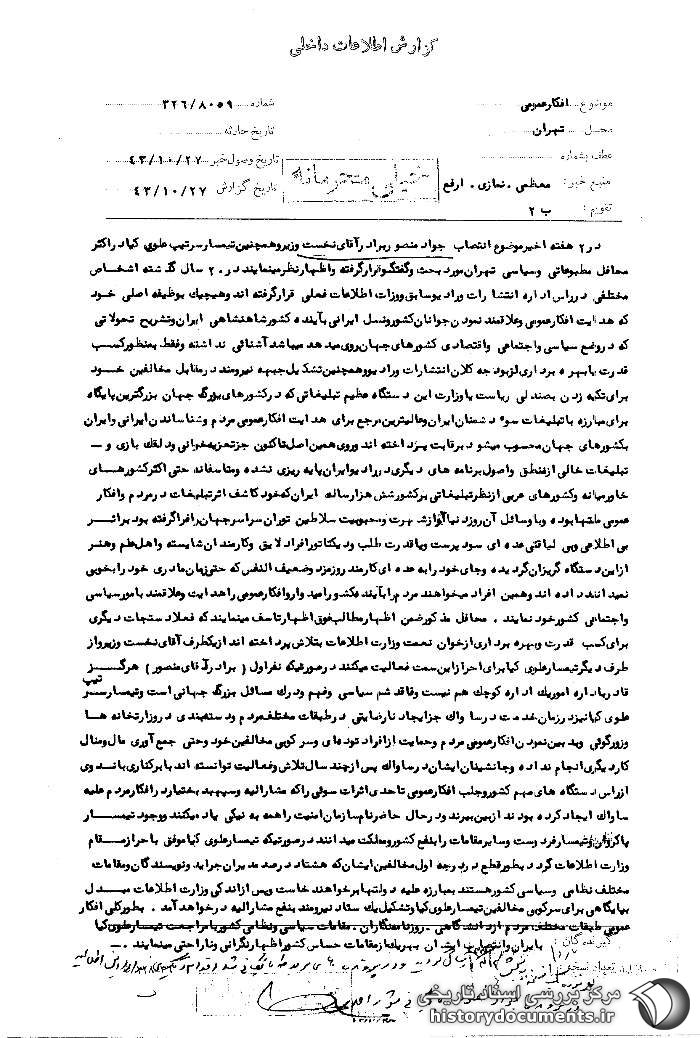 گزارش اطلاعات داخلی
موضوع افکارعمومی
شماره ۳۲۶/۸۰۵۹
محل تهران
تاریخ حادثه
عطف بشماره
تاریخ وصول خبر ۴۳/۱۰/۲۷
منبع خبر: معظمی - نمازی - ارفع
تاریخ گزارش ۴۳/۱۰/۲۷
تقویم: ب ۲
خیلی محرمانه
در۲ هفته اخیر موضوع انتصاب جواد منصور برادر آقای نخست وزیر و همچنین تیمسار سرتیپ علوی کیا در اکثر
محافل مطبوعاتی وسیاسی تهران مورد بحث وگفتگو قرار گرفته و اظهار نظر مینمایند در ۲۰ سال گذشته اشخاص
مختلفی درراس اداره انتشارات و رادیو سابق ووزارت اطلاعات فعلی قرار گرفته اند و هیچیک بوظیفه اصلی خود
که هدایت افکارعمومی وعلاقمند نمودن جوانان کشور ونسل ایرانی بآینده کشور شاهنشاهی ایران وتشریح تحولاتی
که در وضع سیاسی واجتماعی واقتصادی کشورهای جهان روی میدهد میباشد آشنائی نداشته وفقط بمنظور کسب
قدرت یا بهره برداری از بودجه کلان انتشارات ورادیو و همچنین تشکیل جبهه نیرومند در مقابل مخالفین خود
برای تکیه زدن بصندلی ریاست یا وزارت این دستگاه عظیم تبلیغاتی که در کشورهای بزرگ جهان بزرگترین پایگاه
برای مبارزه با تبلیغات سوء دشمنان ایران و عالیترین مرجع برای هدایت افکارعمومی مردم وشناساندن ایرانی وایران
بکشورهای جهان محسوب میشود برقابت پرداخته اند و روی همین اصل تاکنون جز تعزیه خوانی ودلقک بازی و ـ
تبلیغات خالی از منطق واصول برنامه های دیگری در رادیو ایران پایه ریزی نشده و متاسفانه حتی اکثر کشورهای
خاورمیانه وکشورهای عربی از نظر تبلیغاتی بر کشور شش هزار ساله ایران که خود کاشف اثر تبلیغات در مردم وافکار
عمومی ملتها بوده وبا وسائل آن روز دنیا آوازه شهرت و محبوبیت سلاطین توران سراسر جهان را فرا گرفته بود براثر
بی اطلاعی وبی لیاقتی عده ای سود پرست ویا قدرت طلب ودیکتاتور افراد لایق وکارمندان شایسته واهل علم وهنر
از این دستگاه گریزان گردیده وجای خود را به عده ای کارمند روزمزد وضعیف النفس که حتی زبان مادری خود را بخوبی
نمیدانند داده اند وهمین افراد میخواهند مردم را بآینده کشور امیدوار و افکارعمومی را هدایت وعلاقمند بامور سیاسی
واجتماعی کشور خود نمایند . محافل مذکور ضمن اظهار مطالب فوق اظهار تاسف مینمایند که فعلا دستجات دیگری
برای کسب قدرت وبهره برداری از خوان نعمت وزارت اطلاعات بتلاش پرداخته اند از یکطرف آقای نخست وزیر و از
طرف دیگر تیمسار علوی کیا برای احراز این سمت فعالیت میکنند در صورتیکه نفر اول ( برادر آقای منصور ) هرگز
قادر باداره امور یک اداره کوچک هم نیست وفاقد شم سیاسی وفهم ودرک مسائل بزرگ جهانی است و تیمسار سرتیپ
علوی کیا نیز در زمان خدمت در ساواک جز ایجاد نارضایتی در طبقات مختلف مردم ودسته بندی در وزارتخانه ها
وزورگوئی وبدبین نمودن افکارعمومی مردم وحمایت از افراد توده ای وسرکوبی مخالفین خود وحتی جمع آوری مال ومنال
کار دیگری انجام نداده وجانشینان ایشان در ساواک پس از چند سال تلاش وفعالیت توانسته اند با برکناری باند وی
از راس دستگاه های مهم کشور وجلب افکارعمومی تا حدی اثرات سوئی را که مشارالیه و سپهبد بختیار در افکار مردم علیه
ساواک ایجاد کرده بودند از بین ببرند ودر حال حاضر نام سازمان امنیت را همه به نیکی یاد میکنند و وجود تیمسار
پاکروان و تیمسار فردوست وسایر مقامات را بنفع کشور ومملکت میدانند در صورتیکه تیمسار علوی کیا موفق باحراز مقام
وزارت اطلاعات گردد بطور قطع در درجه اول مخالفین ایشان که هشتاد درصد مدیران جراید ونویسندگان ومقامات
مختلف نظامی وسیاسی کشور هستند بمبارزه علیه دولتها برخواهند خاست وپس از اندکی وزارت اطلاعات مبدل
بپایگاهی برای سرکوبی مخالفین تیمسار علوی کیا وتشکیل یک ستاد نیرومند بنفع مشارالیه درخواهد آمد . بطور کلی افکار
عمومی طبقات مختلف مردم از دانشگاهی ـ روزنامه نگاران ـ مقامات سیاسی ونظامی کشور با مراجعت تیمسار علوی کیا
بایران وانتصاب ایشان بهریک از مقامات حساس کشور اظهار نگرانی وناراحتی مینمایند . ـ
گیرندگان
تعداد نسخه
مرکز بررسی اسناد تاریخی
historydocuments.ir